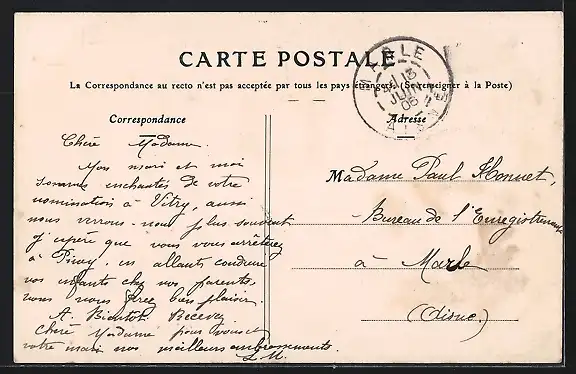 CARTE POSTALE
La Correspondance au recto n'est pas acceptée par tous les pays étrangers. (Se renseigner à la Poste)
MARLE
13
JUIN
06
AISNE
Correspondance
Adresse
Chère Madame.
Mon mari et moi
sommes enchantés de votre
nomination à Vitry, aussi
nous verrons-nous plus souvent
j'espère que vous vous arrêterez
à Pincy, en allants conduire
vos enfants chez vos parents,
vous nous ferez bien plaisir.
A. Bientôt. Recevez
Chère Madame pour vous et
votre mari nos meilleurs embrassements.
L.M.
Madame Paul Honnet,
Bureau de l'Enregistrement
à Marle
(Aisne.)